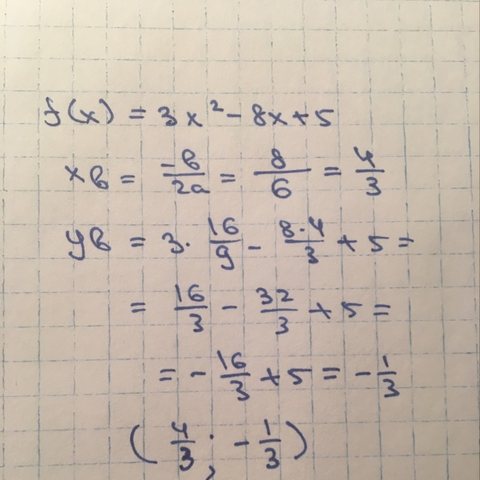 f(x) = 3x² - 8x + 5
xв = -b/2a = 8/6 = 4/3
yв = 3 · 16/9 - 8·4/3 + 5 =
= 16/3 - 32/3 + 5 =
= - 16/3 + 5 = - 1/3
(4/3; - 1/3)